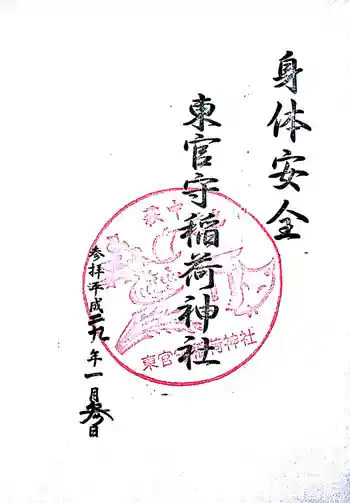 身体安全
東官守稲荷神社
参拝平成二九年一月参日
東官守稲荷神社